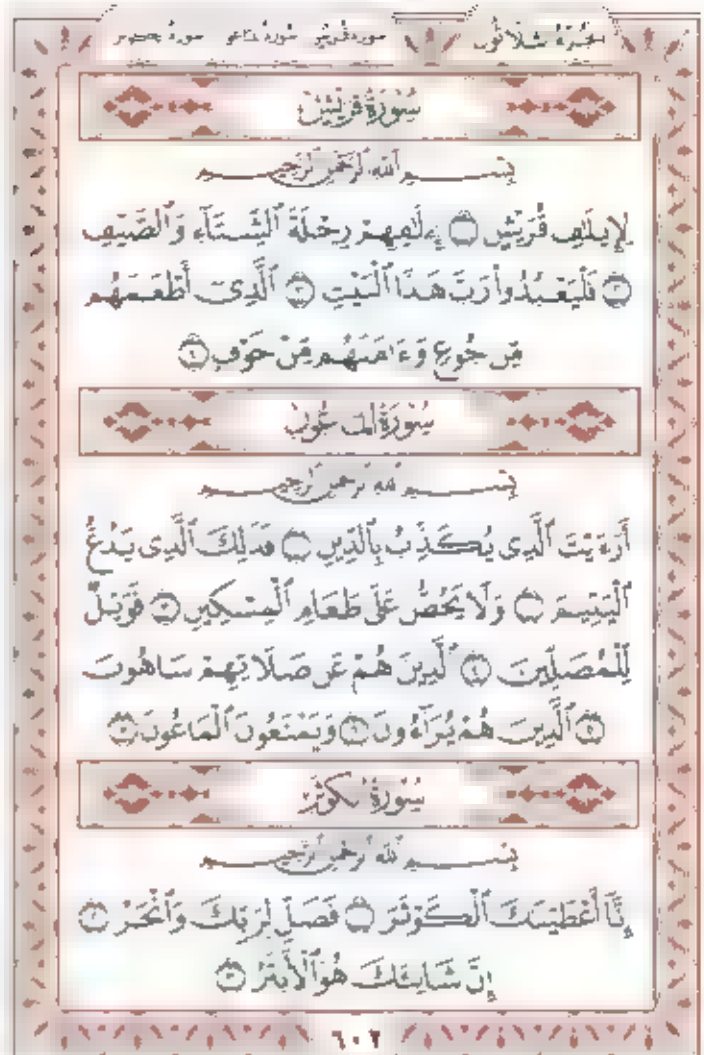 الجزء الثلاثون سورة قريش سورة الماعون سورة الكوثر
سُورَةُ قُرَيْشٍ
بِسْمِ ٱللَّهِ ٱلرَّحْمَٰنِ ٱلرَّحِيمِ
لِإِيلَٰفِ قُرَيْشٍ ١ إِۦلَٰفِهِمْ رِحْلَةَ ٱلشِّتَآءِ وَٱلصَّيْفِ
٢ فَلْيَعْبُدُوا۟ رَبَّ هَٰذَا ٱلْبَيْتِ ٣ ٱلَّذِىٓ أَطْعَمَهُم
مِّن جُوعٍ وَءَامَنَهُم مِّنْ خَوْفٍ ٤
سُورَةُ المَاعُونِ
بِسْمِ ٱللَّهِ ٱلرَّحْمَٰنِ ٱلرَّحِيمِ
أَرَءَيْتَ ٱلَّذِى يُكَذِّبُ بِٱلدِّينِ ١ فَذَٰلِكَ ٱلَّذِى يَدُعُّ
ٱلْيَتِيمَ ٢ وَلَا يَحُضُّ عَلَىٰ طَعَامِ ٱلْمِسْكِينِ ٣ فَوَيْلٌ
لِّلْمُصَلِّينَ ٤ ٱلَّذِينَ هُمْ عَن صَلَاتِهِمْ سَاهُونَ
٥ ٱلَّذِينَ هُمْ يُرَآءُونَ ٦ وَيَمْنَعُونَ ٱلْمَاعُونَ ٧
سُورَةُ الكَوْثَرِ
بِسْمِ ٱللَّهِ ٱلرَّحْمَٰنِ ٱلرَّحِيمِ
إِنَّآ أَعْطَيْنَٰكَ ٱلْكَوْثَرَ ١ فَصَلِّ لِرَبِّكَ وَٱنْحَرْ ٢
إِنَّ شَانِئَكَ هُوَ ٱلْأَبْتَرُ ٣
٦٠٢